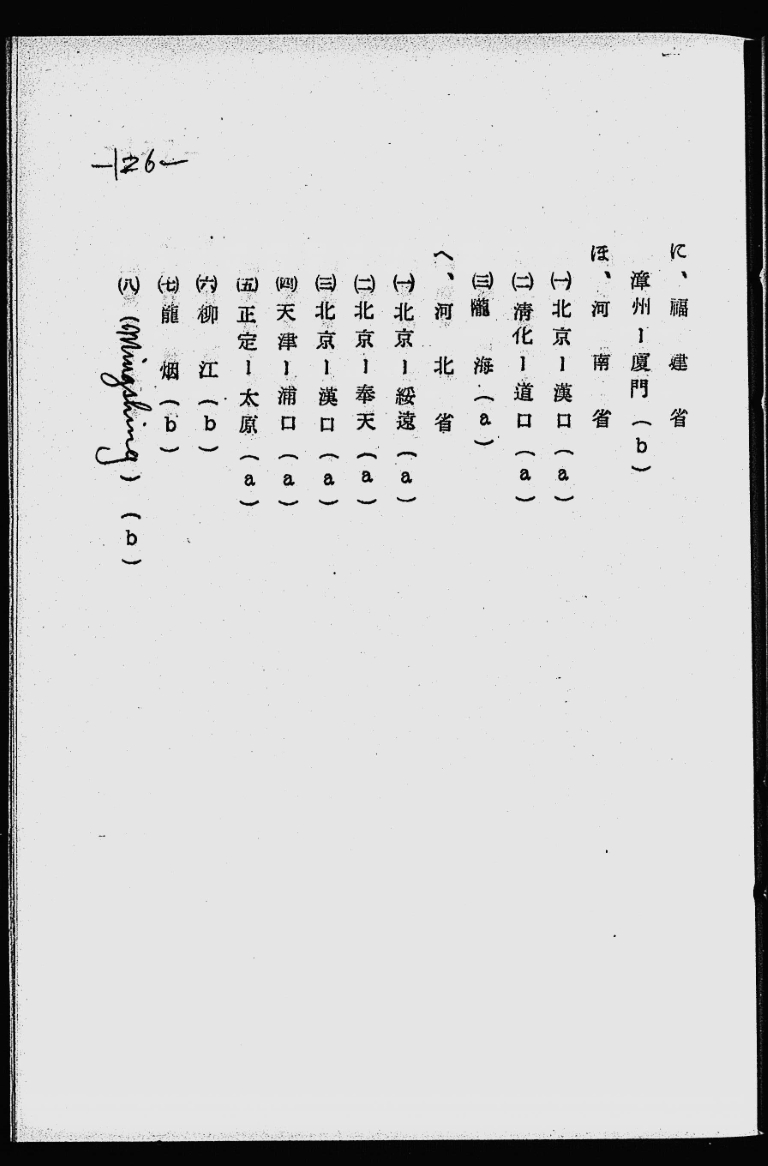 —126—
に、福建省
漳州ー廈門(b)
ほ、河南省
㈠北京ー漢口(a)
㈡清化ー道口(a)
㈢隴海(a)
へ、河北省
㈠北京ー綏遠(a)
㈡北京ー奉天(a)
㈢北京ー漢口(a)
㈣天津ー浦口(a)
㈤正定ー太原(a)
㈥柳江(b)
㈦龍烟(b)
㈧(Mingshing)(b)